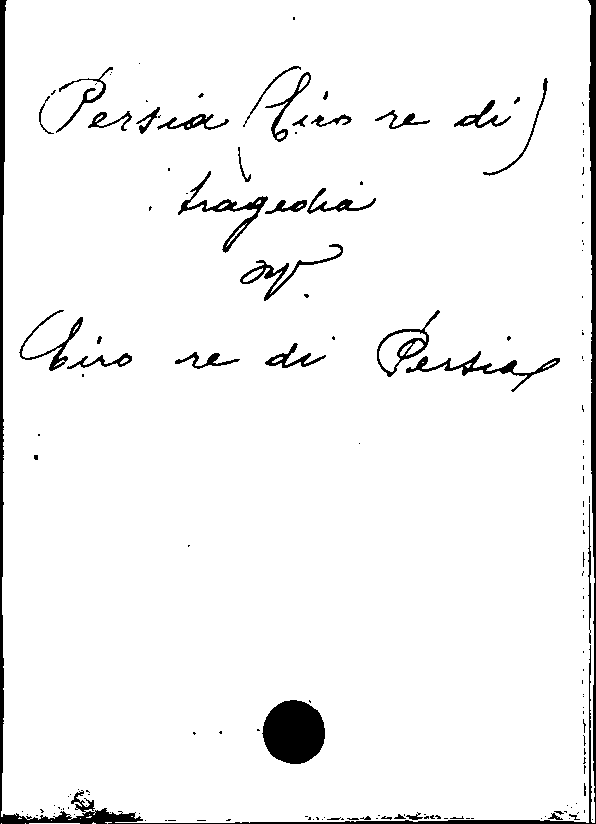 Persia (Ciro re di)
tragedia
v.
Ciro re di Persia